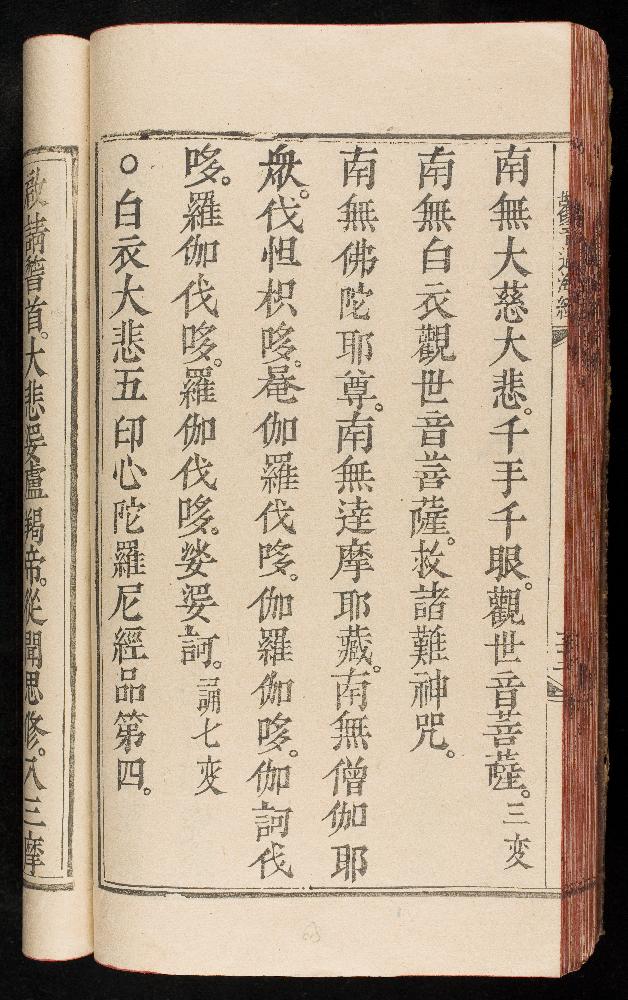 南無大慈大悲。千手千眼。觀世音菩薩。三变
南無白衣觀世音菩薩。救諸難神咒。
南無佛陀耶尊。南無達摩耶藏。南無僧伽耶
衆。伐怛枳哆。菴伽羅伐哆。伽羅伽哆。伽訶伐
哆。羅伽伐哆。羅伽伐哆。娑婆訶。誦七变
○白衣大悲五印心陀羅尼經品第四。
啟請稽首。大悲婆盧羯帝。從聞思修。入三摩